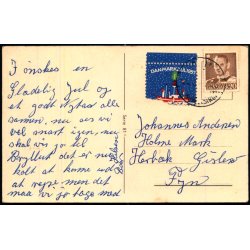 I ønskes en
Glædelig Jul og
et godt nytaar alle
sammen, nu ses vi
vel snart igen, nu
skal vi jo til
Bryllup det er
koldt at komme ud
at rejse men det
maa vi jo tage med
DANMARK JUL 1951
DANMARK
Johannes Andersen
Holme Mark
Hesbak Gislev
Fyn